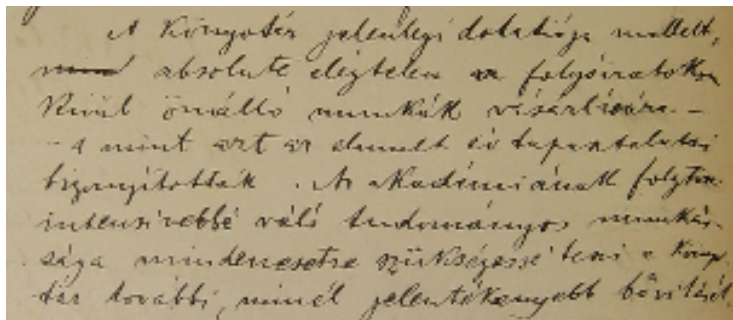 A Könyvtár jelenlegi dotatiója mellett,
absolute elégtelen a folyóiratokon
kívül önálló munkák vásárlására –
– a mint azt az elmult év tapasztalatai
bizonyították. Az akadémiának folyton
intensivebbé váló tudományos munkás-
sága mindenesetre szükségessé teszi a Könyv-
tár további, minél jelentékenyebb bővítését